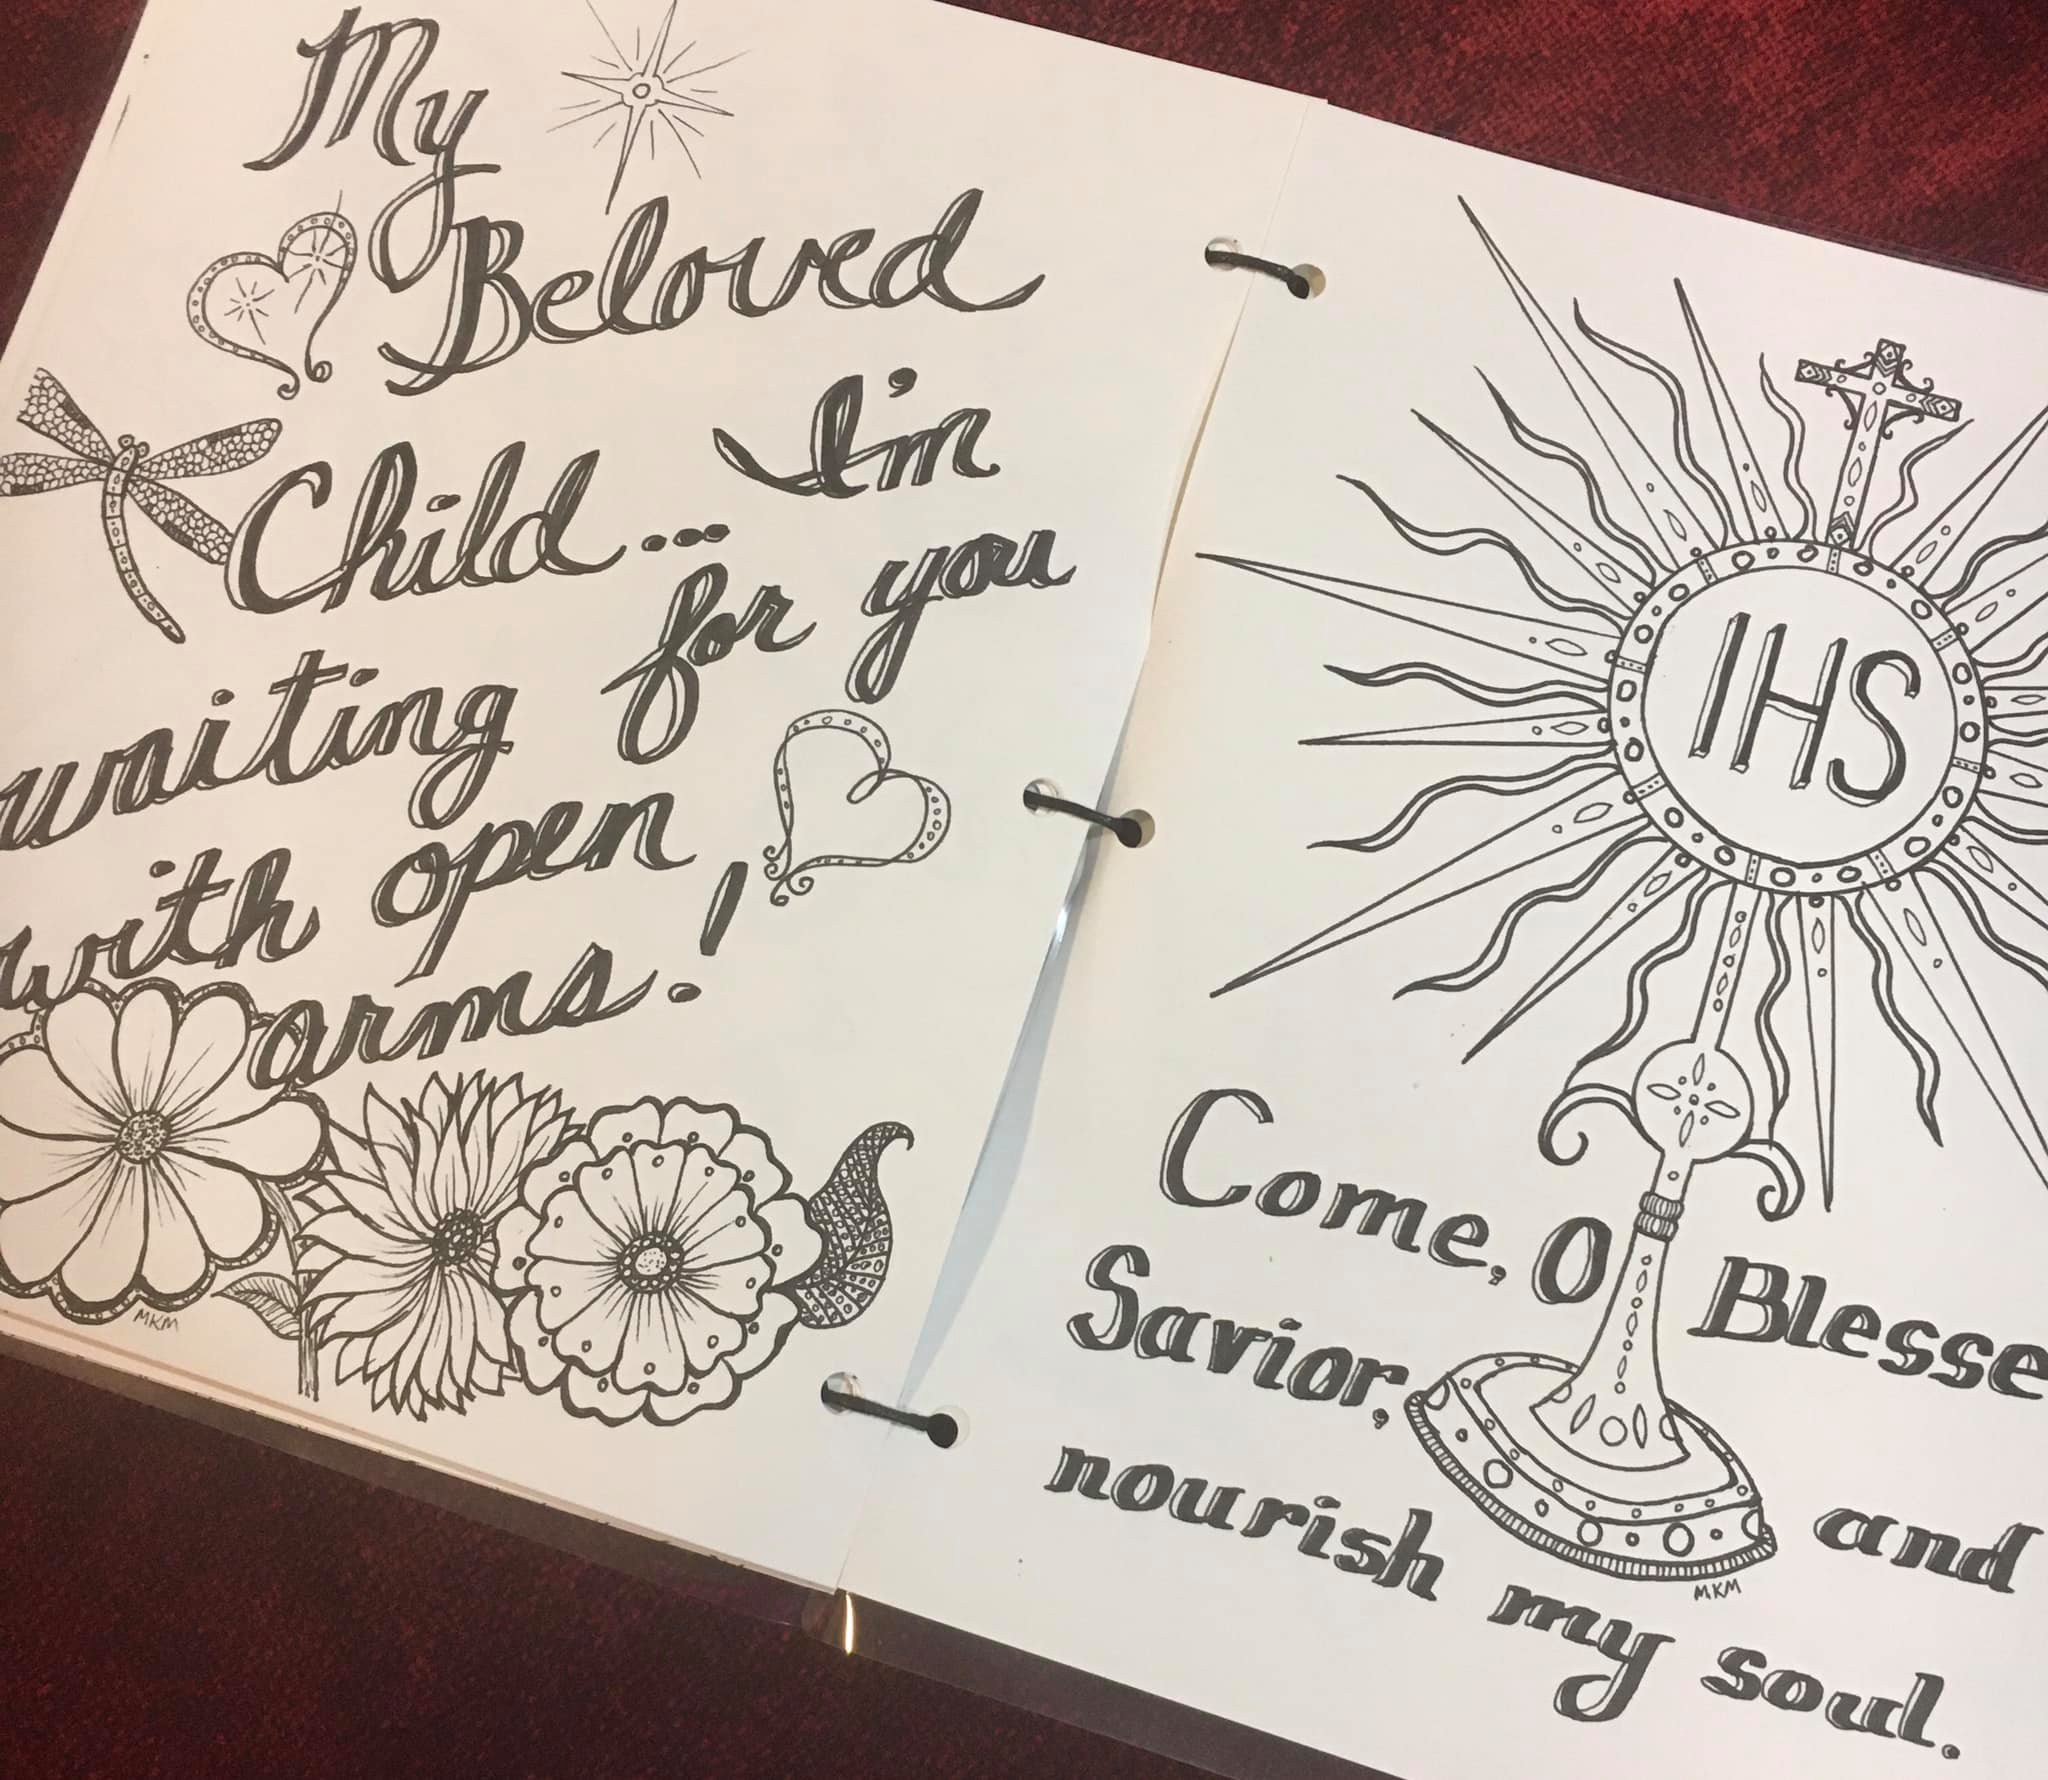 My
Beloved
Child... I'm
waiting for you
with open
arms!
MKM
IHS
Come, O Blesse
Savior, and
nourish my soul.
MKM